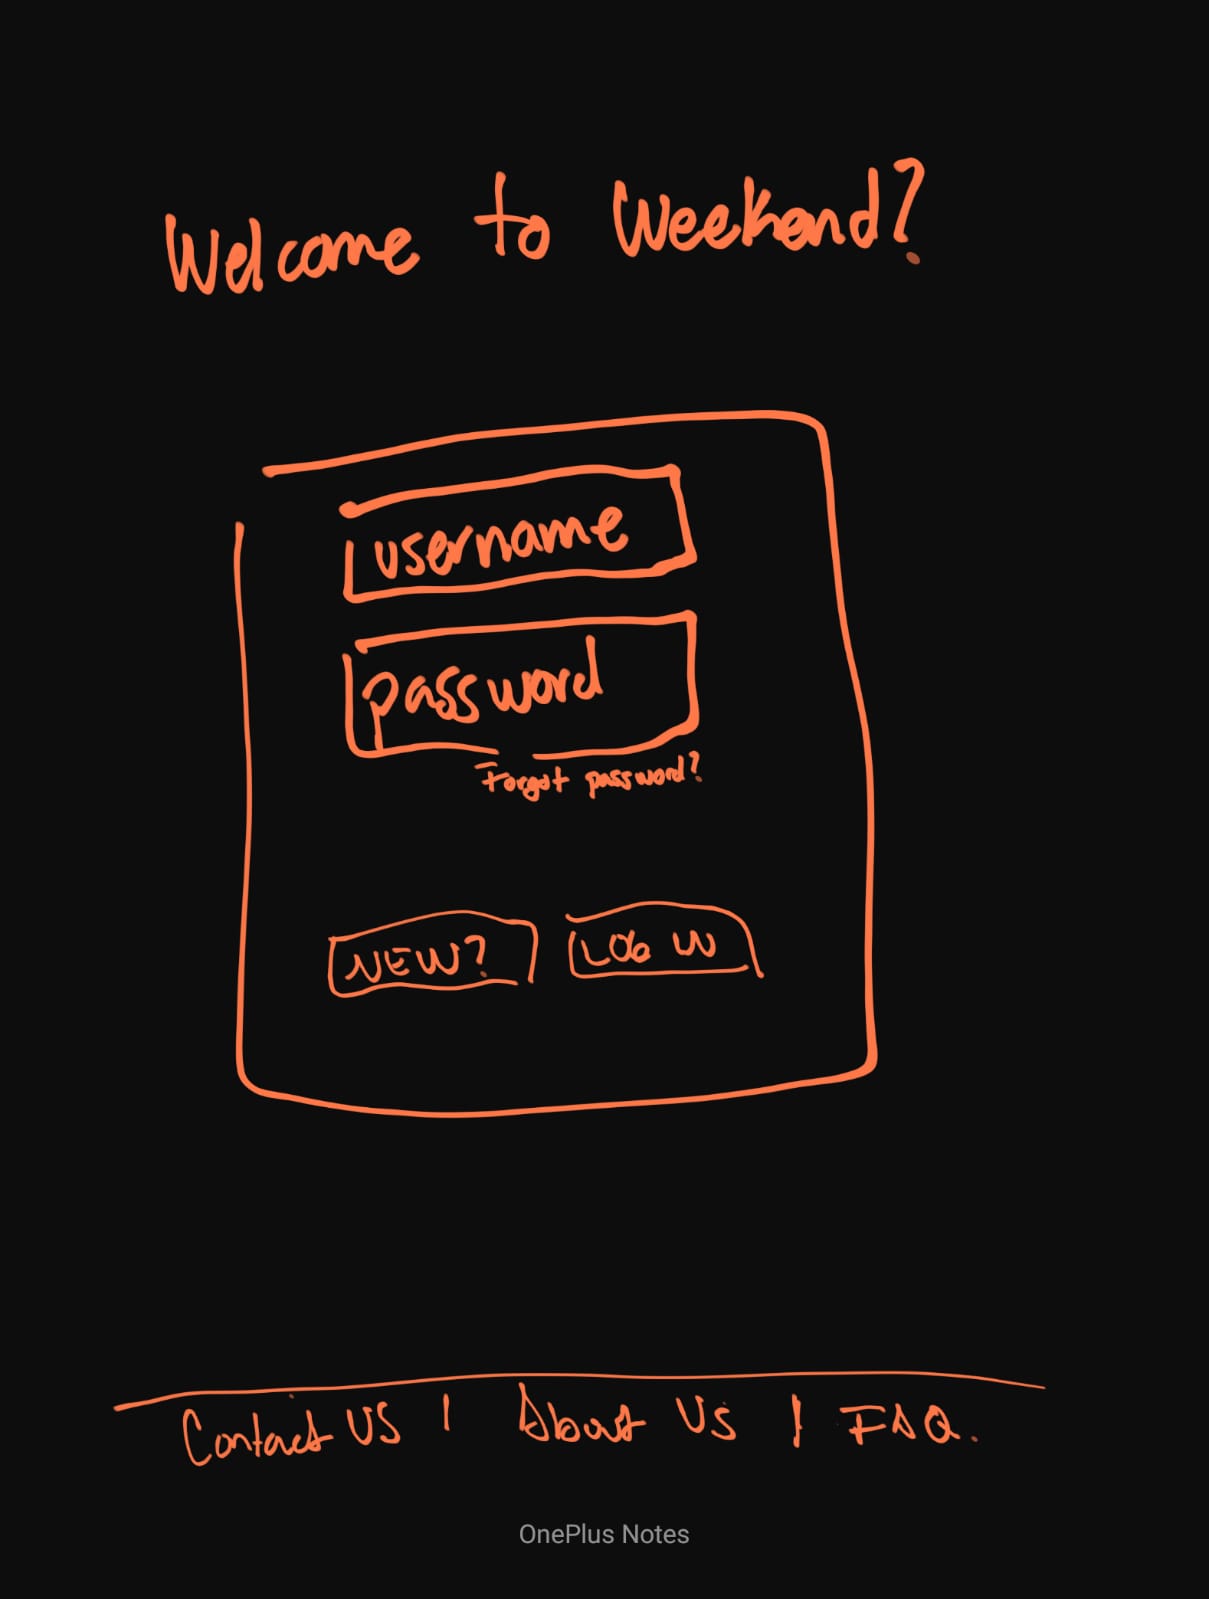 Welcome to Weekend?
username
password
Forgot password?
NEW? LOG IN
Contact US | About Us | FAQ.
OnePlus Notes